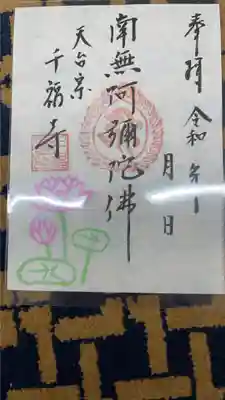 奉拝 令和 年
月 日
南無阿彌陀佛
天台宗
千福寺